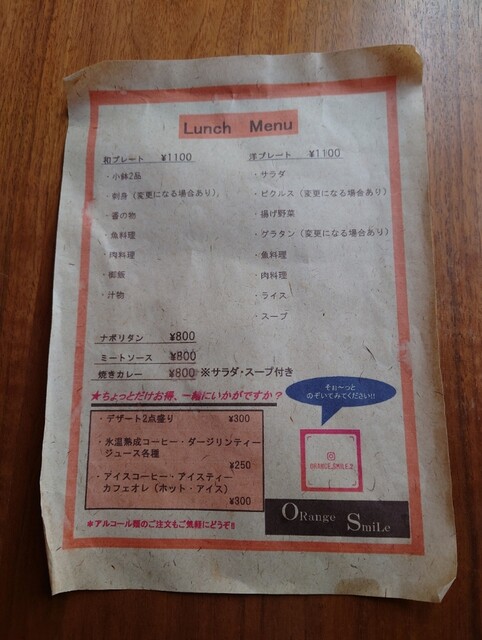 Lunch Menu
和プレート ¥1100
・小鉢2品
・刺身（変更になる場合あり）,
・香の物
・魚料理
・肉料理
・御飯
・汁物
洋プレート ¥1100
・サラダ
・ピクルス（変更になる場合あり）
・揚げ野菜
・グラタン（変更になる場合あり）
・魚料理
・肉料理
・ライス
・スープ
ナポリタン ¥800
ミートソース ¥800
焼きカレー ¥800 ※サラダ・スープ付き
★ちょっとだけお得、一緒にいかがですか？
・デザート2点盛り ¥300
・氷温熟成コーヒー・ダージリンティー
ジュース各種
¥250
・アイスコーヒー・アイスティー
カフェオレ（ホット・アイス）
¥300
そぉ～っと
のぞいてみてください!!
ORANGE_SMILE.2
ORange SmiLe
＊アルコール類のご注文もご気軽にどうぞ!!